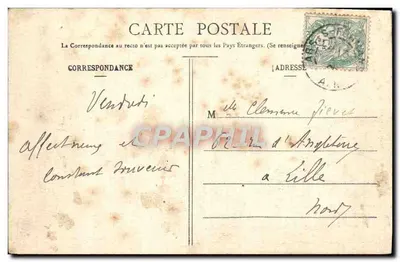 CARTE POSTALE
La Correspondance au recto n'est pas acceptée par tous les Pays Etrangers. (Se renseigne
CORRESPONDANCE
ADRESSE
Vendredi
Affectueux et
constant souvenir
Mlle Clémence
rue d'Angleterre
à Lille
Nord
CPAPHIL